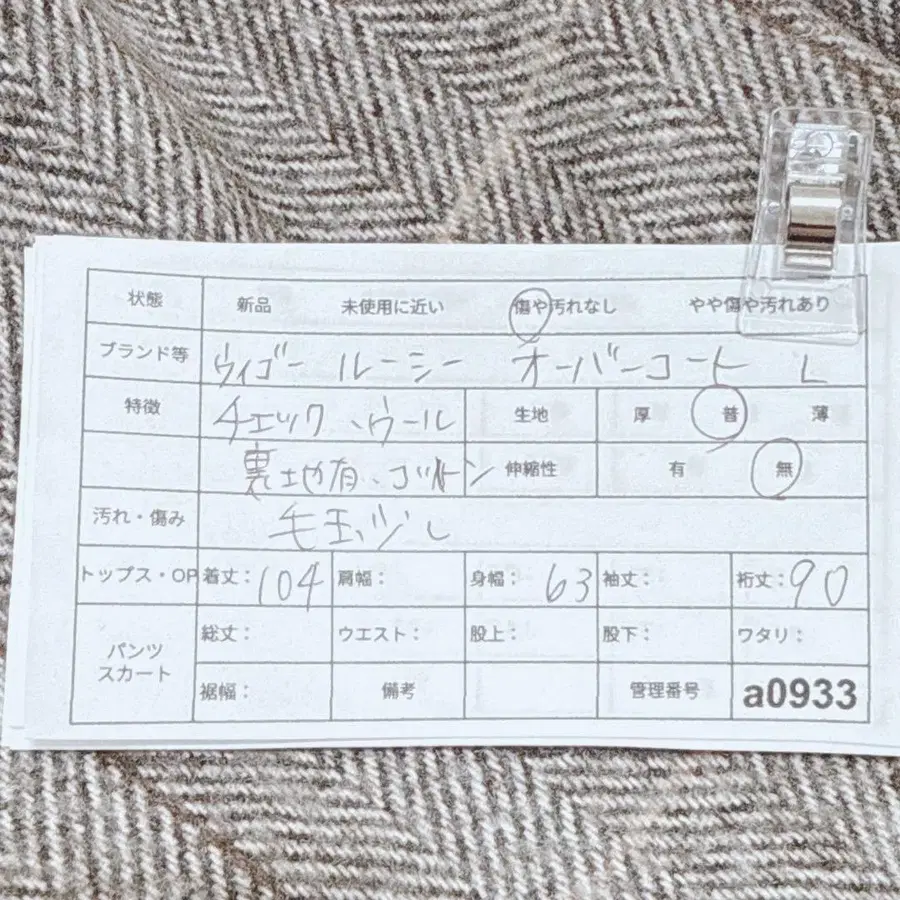 状態 新品 未使用に近い 傷や汚れなし やや傷や汚れあり
ブランド等 ウィゴー ルーシー オーバーコート L
特徴 チェック、ウール 生地 厚 普 薄
裏地有、コットン 伸縮性 有 無
汚れ・傷み 毛玉少し
トップス・OP 着丈：104 肩幅： 身幅：63 袖丈： 裄丈：90
パンツ
スカート
総丈： ウエスト： 股上： 股下： ワタリ：
裾幅： 備考 管理番号 a0933